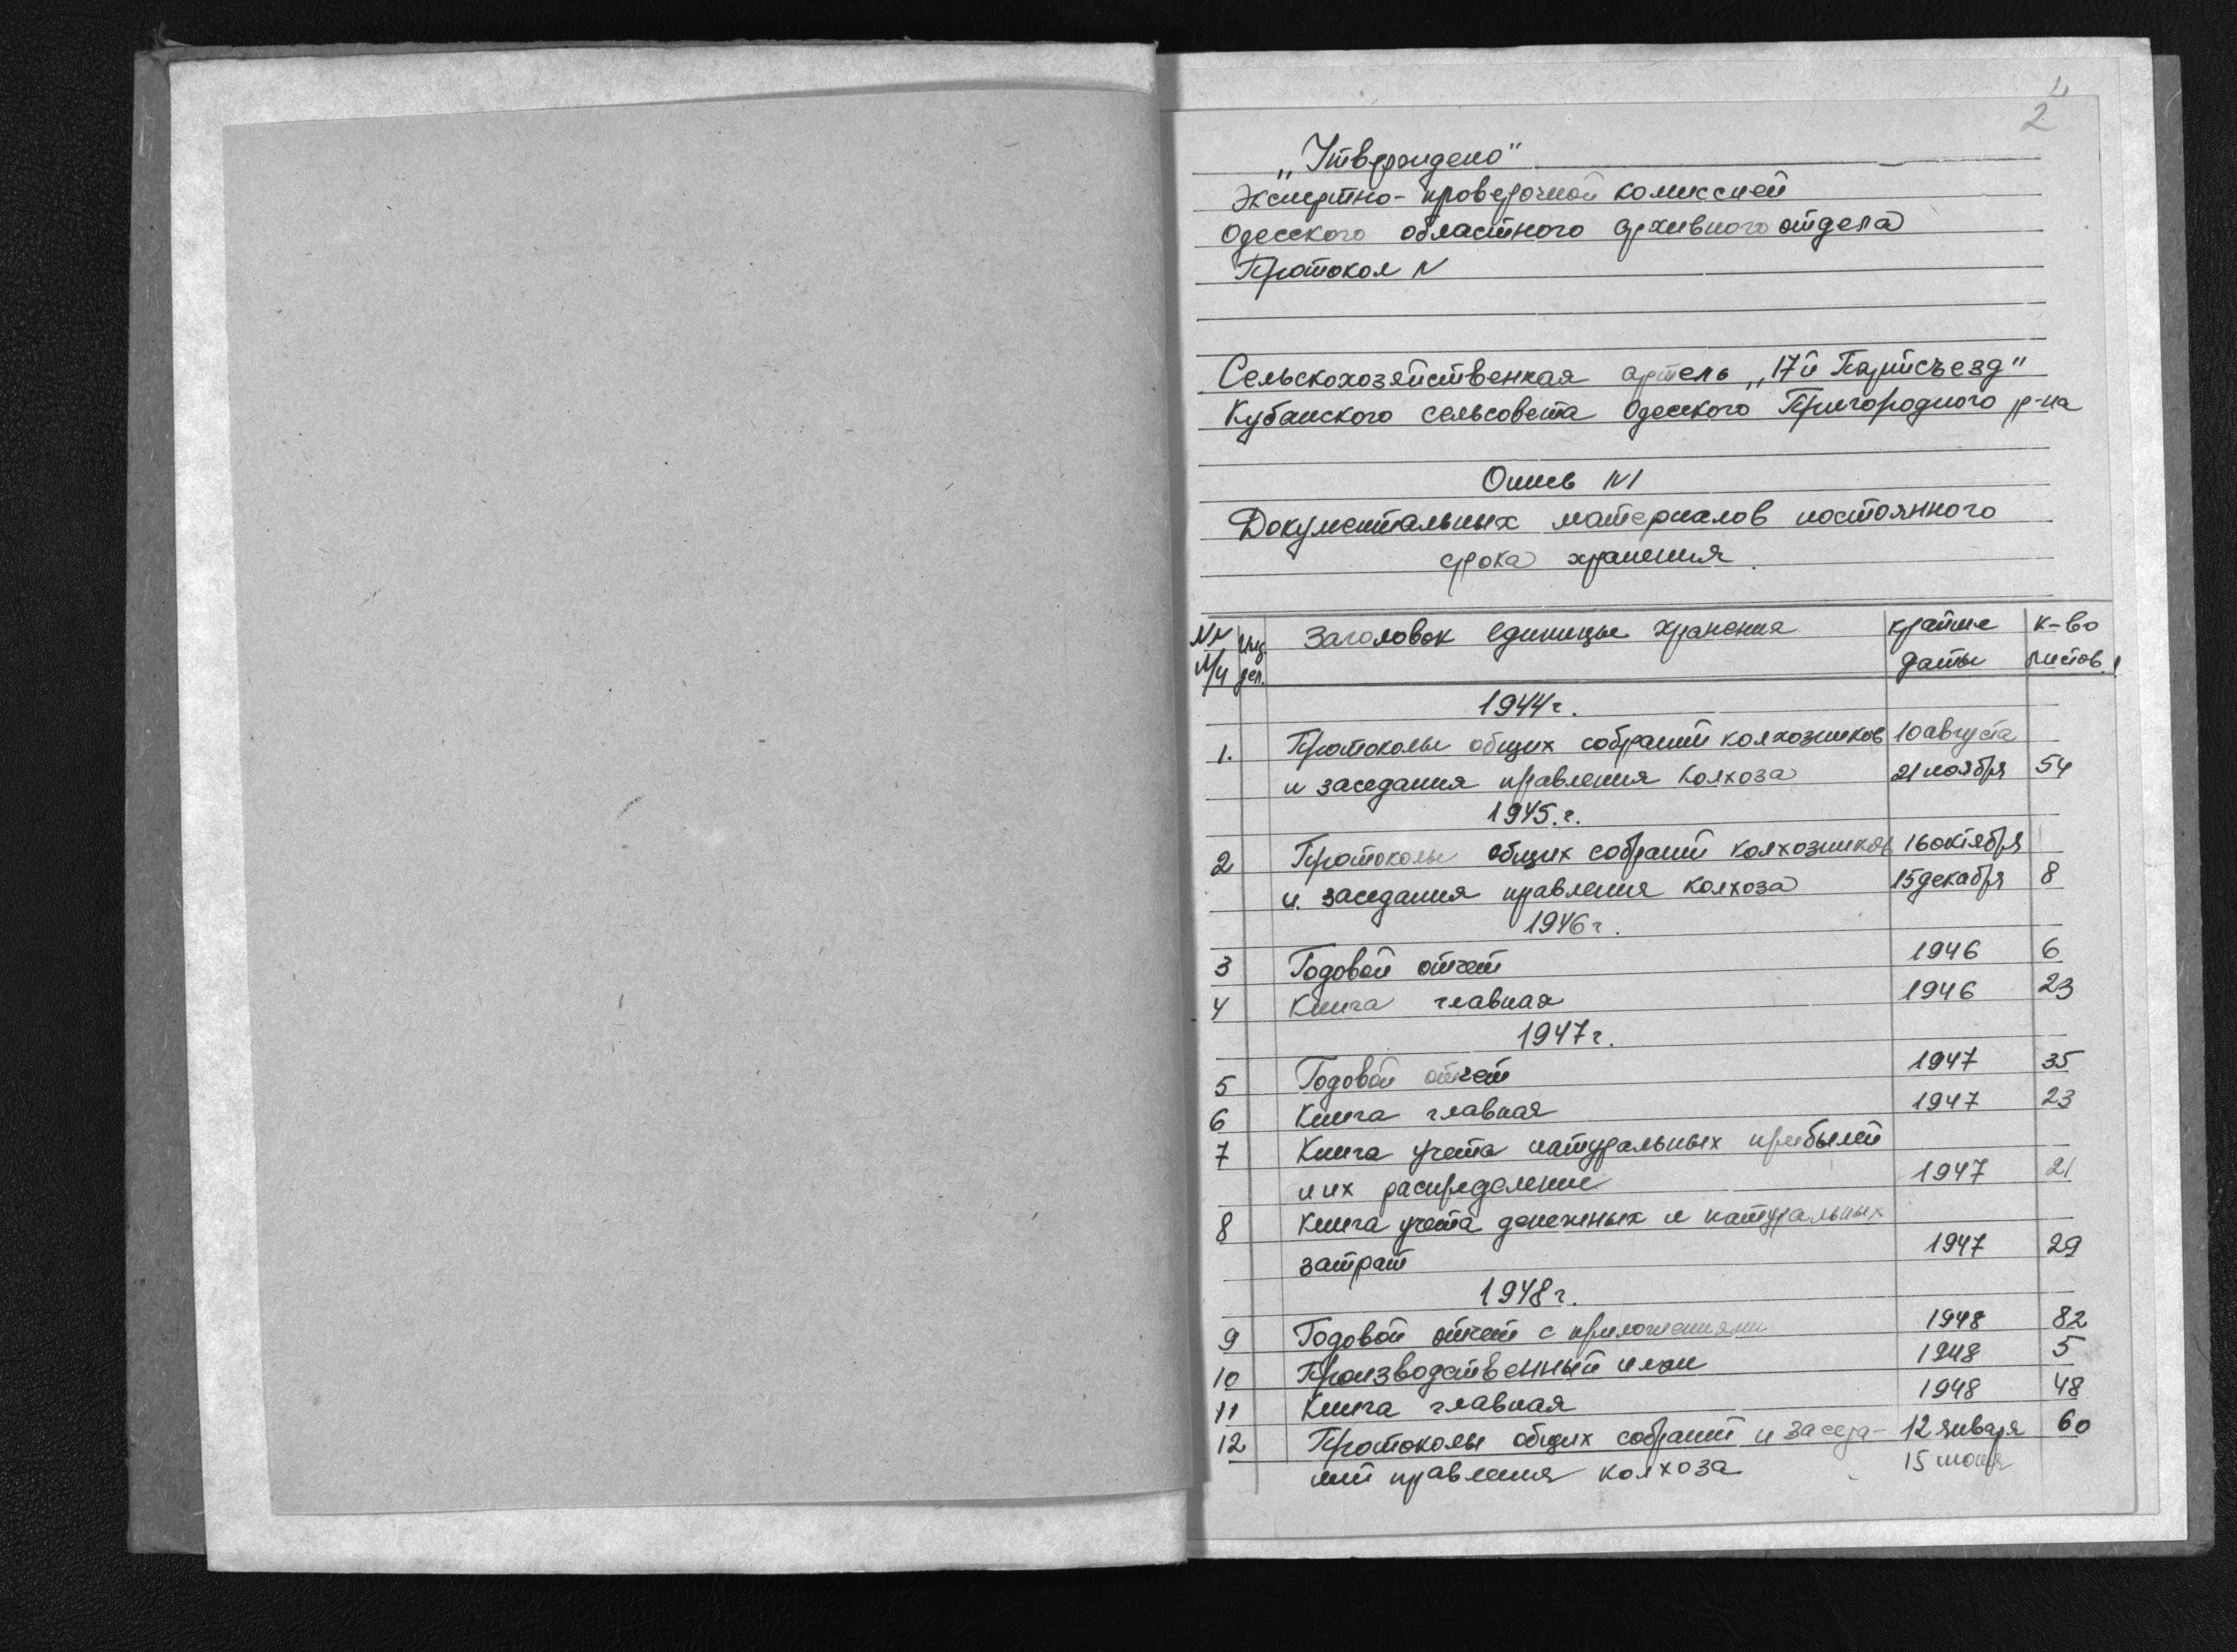 2
„Утверждено"
Экспертно-проверочной комиссией
Одесского областного архивного отдела
Протокол N
Сельскохозяйственная артель „17й Партсъезд"
Кубанского сельсовета Одесского Пригородного р-на
Опись N1
Документальных материалов постоянного
срока хранения.
NN п/п Инд. дел. Заголовок единицы хранения крайние даты к-во листов
1944г.
1. Протоколы общих собраний колхозников 10 августа
и заседания правления колхоза 21 ноября 54
1945.г.
2 Протоколы общих собраний колхозников 16 октября
и. заседания правления колхоза 15 декабря 8
1946г.
3 Годовой отчет 1946 6
4 Книга главная 1946 23
1947г.
5 Годовой отчет 1947 35
6 Книга главная 1947 23
7 Книга учета натуральных прибылей
и их распределение 1947 21
8 Книга учета денежных и натуральных
затрат 1947 29
1948г.
9 Годовой отчет с приложениями 1948 82
10 Производственный план 1948 5
11 Книга главная 1948 48
12 Протоколы общих собраний и заседа- 12 января 60
ний правления колхоза 15